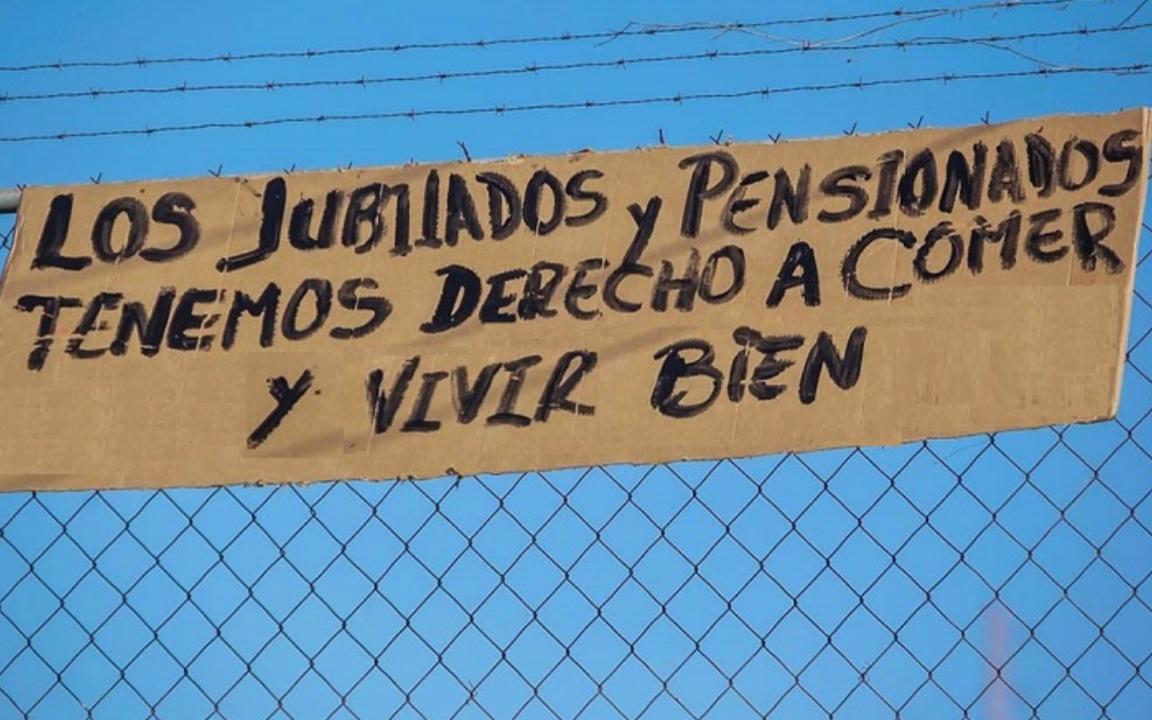 LOS JUBILADOS y PENSIONADOS
TENEMOS DERECHO A COMER
Y VIVIR BIEN